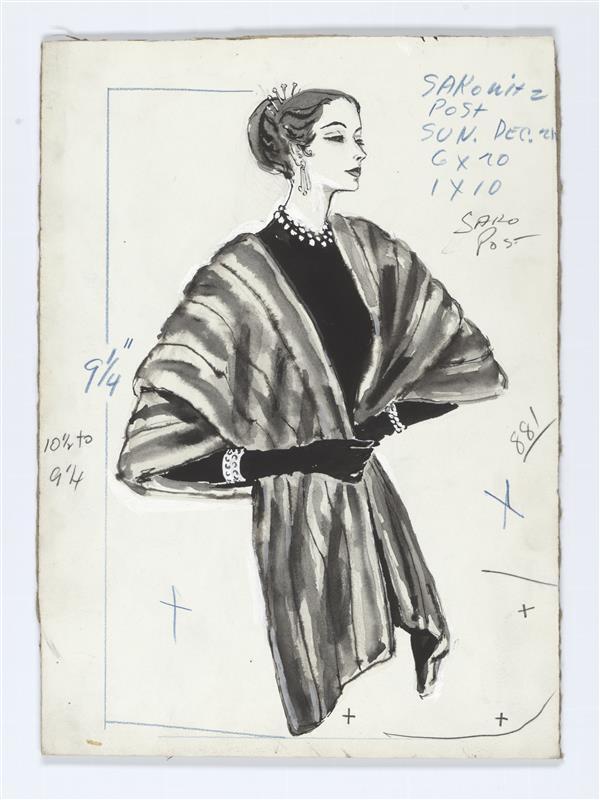 SAKowitz
POST
SUN. DEC.
6 X 20
1 X 10
SAKO
POST
9 1/4"
10 1/2 to
9 1/4
881